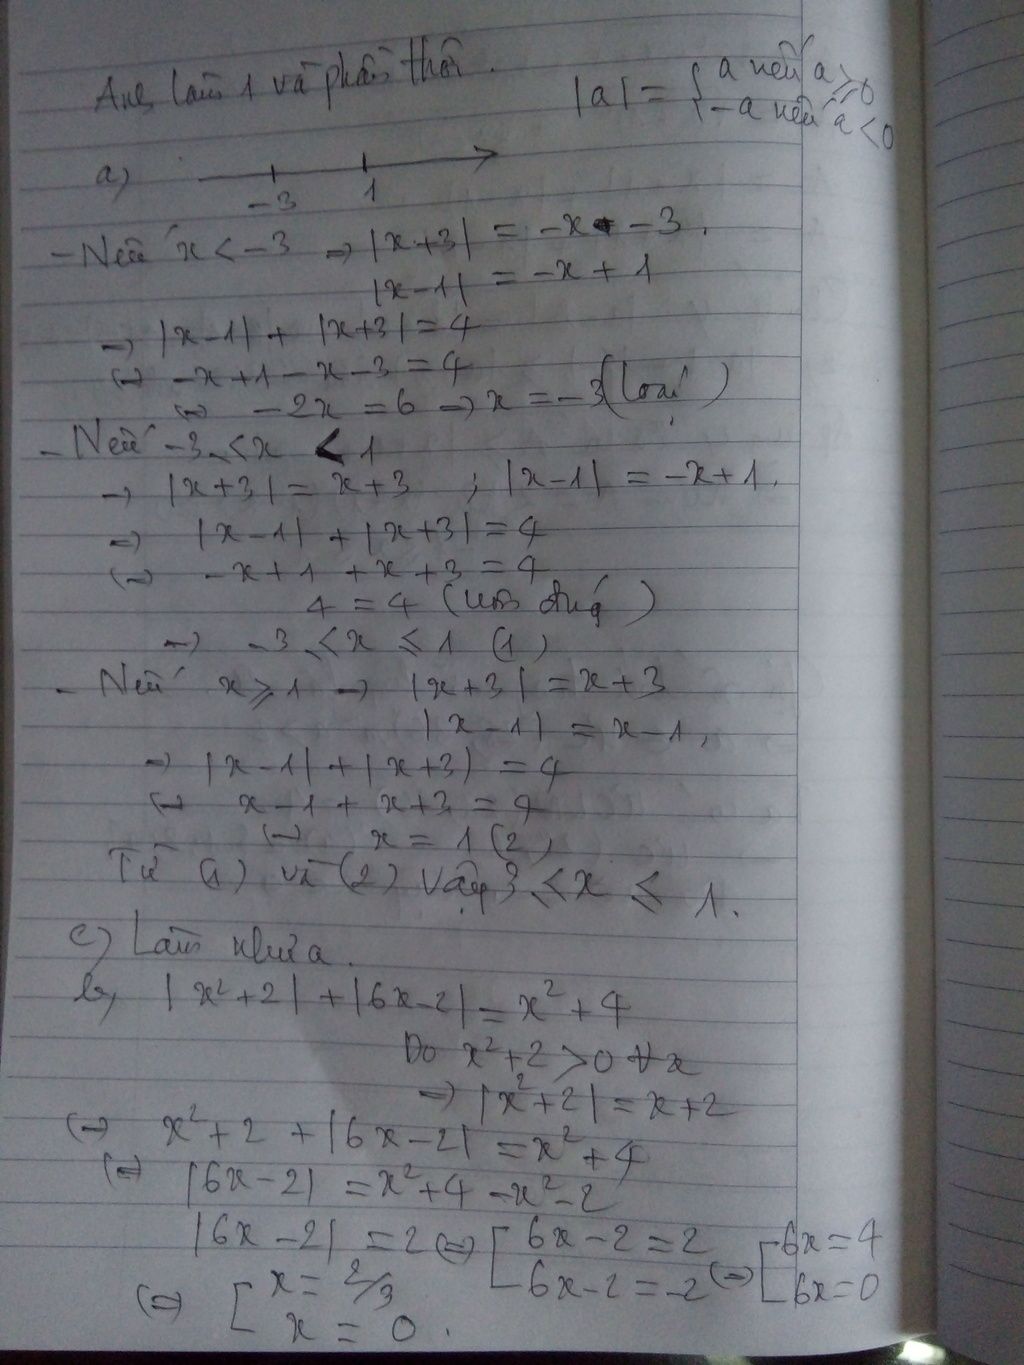 Anh làm 1 vài phần thôi.
|a| = { a nếu a ≥ 0
-a nếu a < 0
a)
-3 1
- Nếu x < -3 → |x+3| = -x - 3.
|x-1| = -x + 1
→ |x-1| + |x+3| = 4
(→ -x+1-x-3=4
(→ -2x = 6 → x = -3 (loại)
- Nếu -3 ≤ x < 1
→ |x+3| = x+3 ; |x-1| = -x+1.
→ |x-1| + |x+3| = 4
(→ -x+1 + x+3 = 4
4 = 4 (luôn đúng)
→ -3 ≤ x ≤ 1 (1)
- Nếu x ≥ 1 → |x+3| = x+3
|x-1| = x-1,
→ |x-1| + |x+3| = 4
(→ x-1 + x+3 = 4
(→ x = 1 (2)
Từ (1) và (2) vậy 3 ≤ x ≤ 1.
c) Làm như a.
b, |x²+2| + |6x-2| = x²+4
Do x²+2 > 0 ∀x
→ |x²+2| = x+2
(→ x²+2 + |6x-2| = x²+4
(=) |6x-2| = x²+4 -x²-2
|6x-2| = 2 (=) [ 6x-2=2 (→ [ 6x=4
6x-2=-2 6x=0
(=) [ x = 2/3
x = 0.